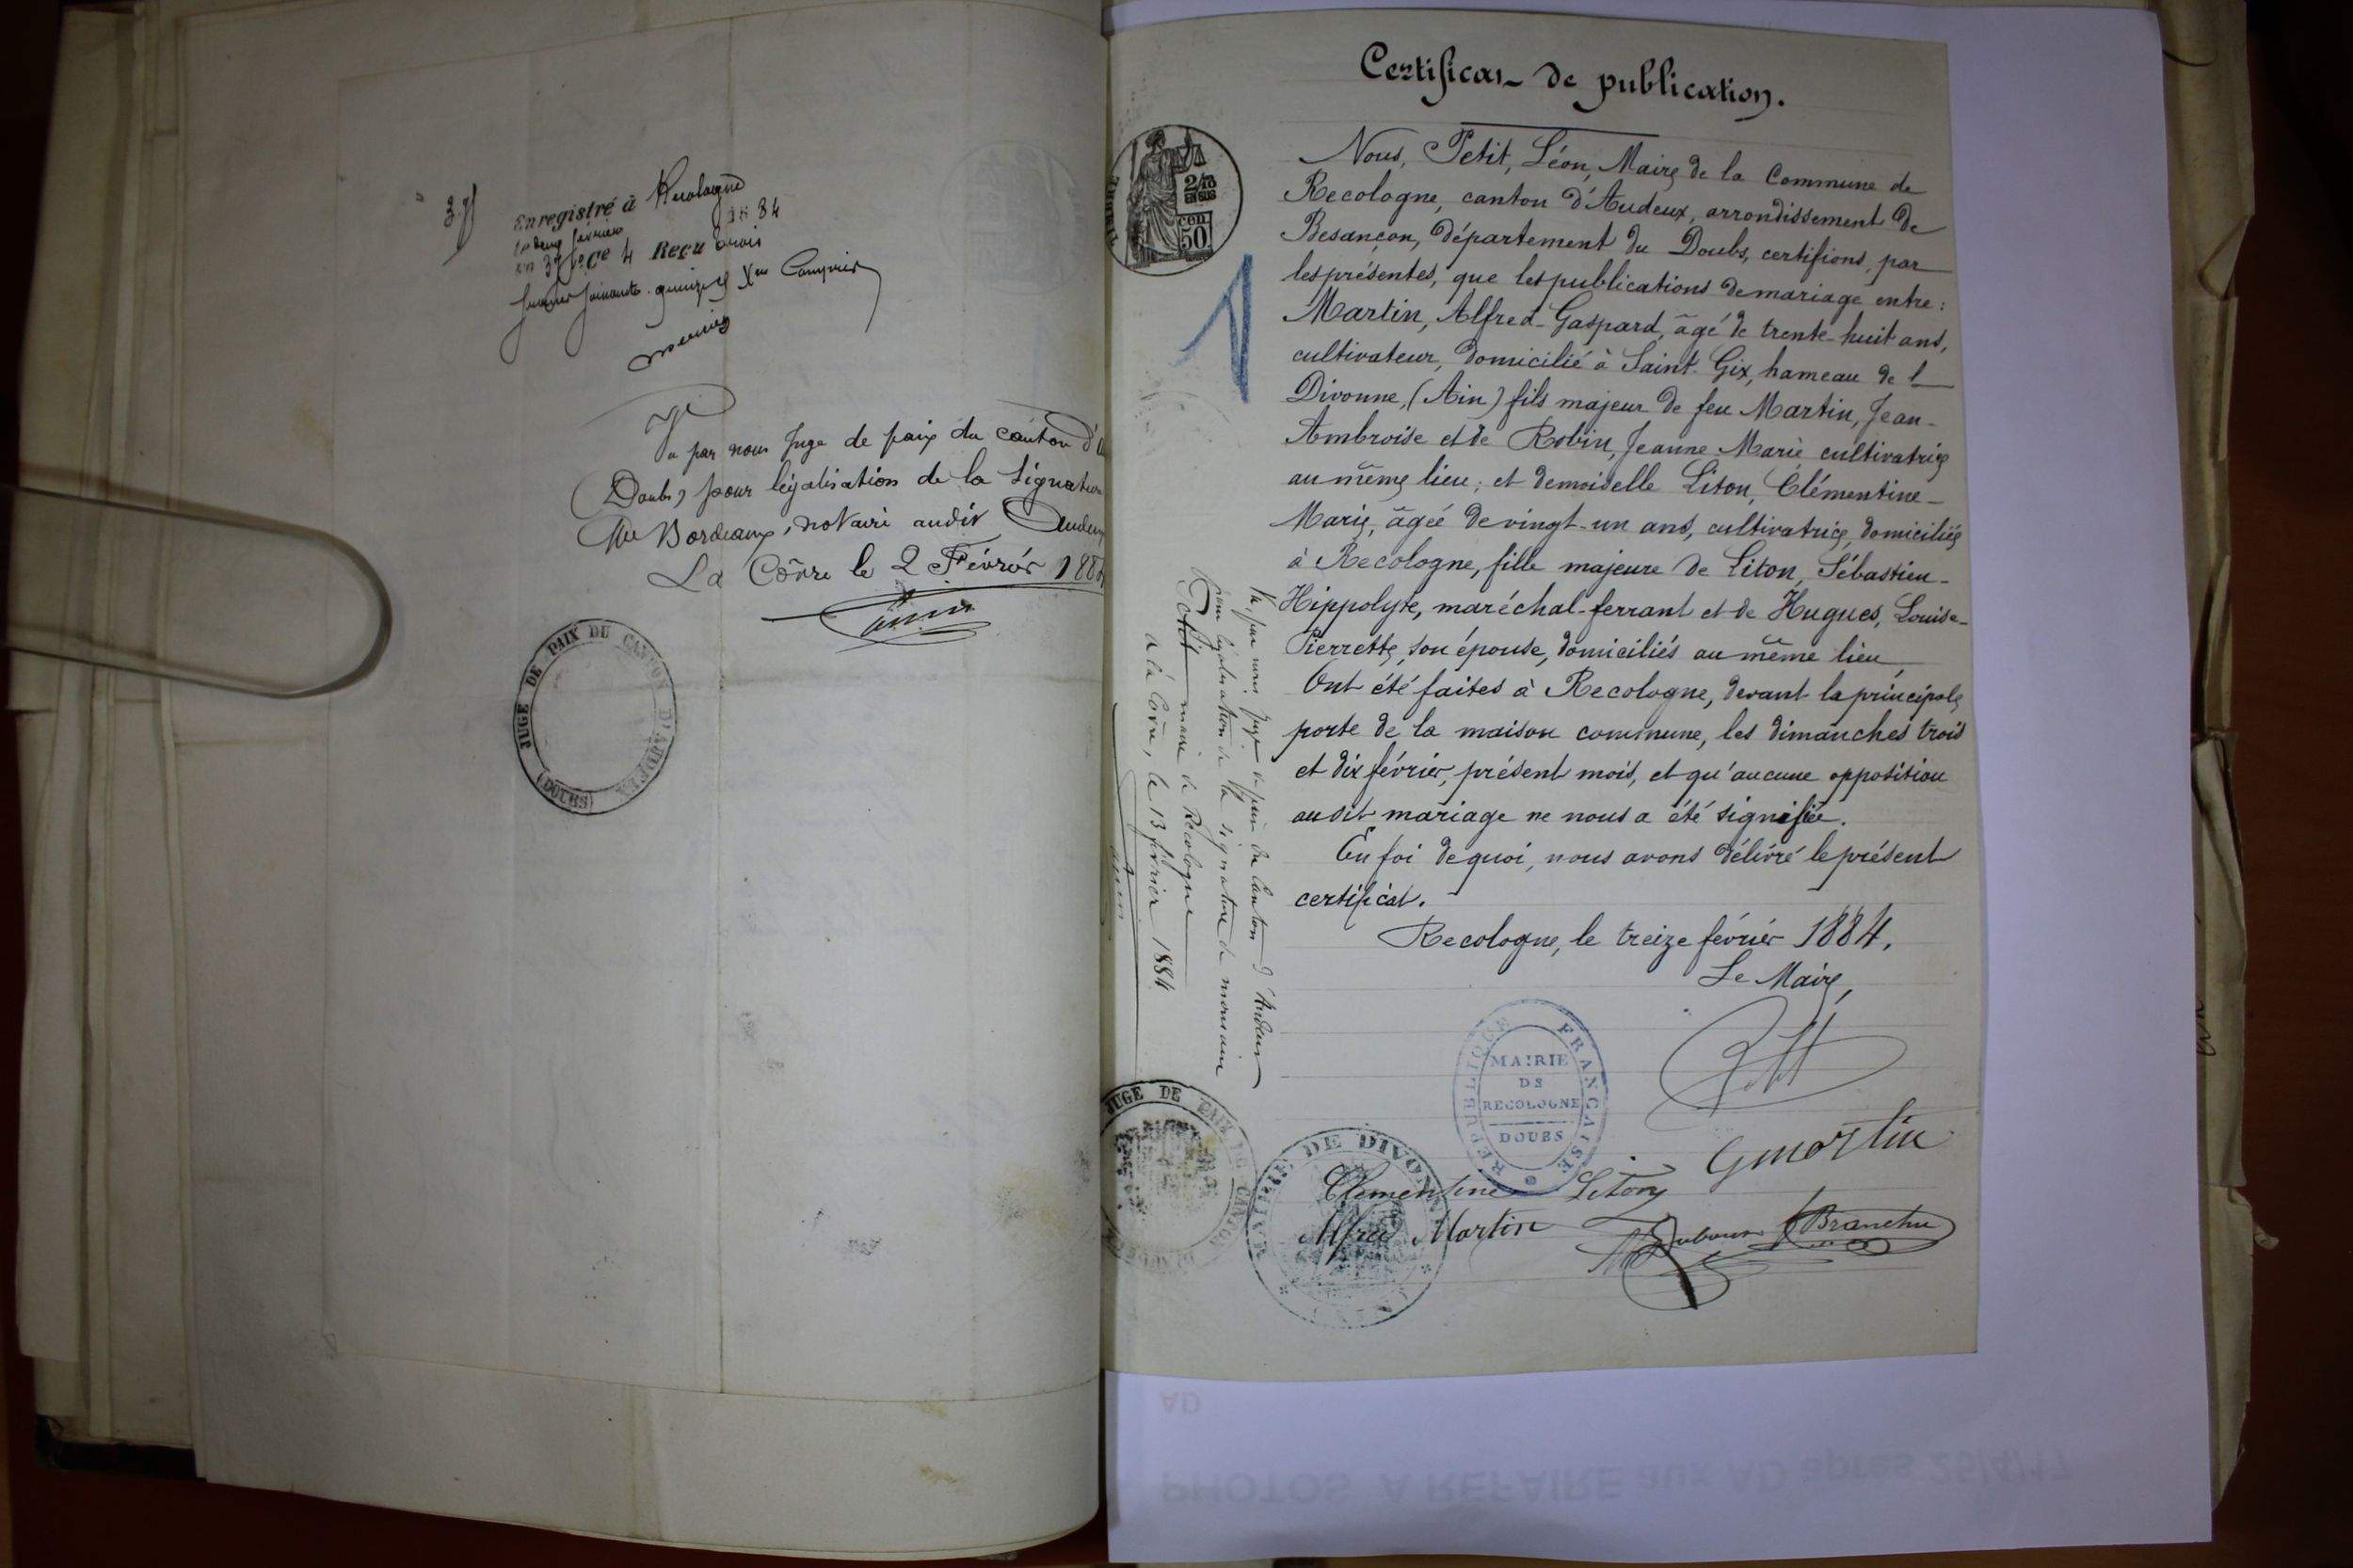 37
Enregistré à Recologne
le deux février 1884
Reçu trois
francs soixante-quinze cmes Compris
Vu par nous Juge de paix du canton d'
(Doubs) pour légalisation de la signature
Me Bordeaux, notaire audit Audeux
La Côvre le 2 Février 188
JUGE DE PAIX DU CANTON D'AUDEUX
(DOUBS)
Certificat de publication.
TIMBRE
2/10 EN SUS
50
Nous, Petit, Léon, Maire de la Commune de
Recologne, canton d'Audeux, arrondissement de
Besançon, département du Doubs, certifions, par
les présentes, que les publications de mariage entre :
Martin, Alfred-Gaspard, âgé de trente-huit ans,
cultivateur, domicilié à Saint-Gix, hameau de
Divonne, (Ain) fils majeur de feu Martin, Jean-
Ambroise et de Robin, Jeanne Marie cultivatrice
au même lieu ; et demoiselle Liton, Clémentine-
Marie, âgée de vingt-un ans, cultivatrice, domiciliée
à Recologne, fille majeure de Liton, Sébastien-
Hippolyte, maréchal-ferrant et de Hugues, Louise-
Pierrette, son épouse, domiciliés au même lieu,
Ont été faites à Recologne, devant la principale
porte de la maison commune, les dimanches trois
et dix février, présent mois, et qu'aucune opposition
audit mariage ne nous a été signifiée.
En foi de quoi, nous avons délivré le présent
certificat.
Recologne, le treize février 1884.
Le Maire,
Petit
REPUBLIQUE FRANCAISE
MAIRIE
DE
RECOLOGNE
DOUBS
G martin
Clementine Liton
Alfred Martin
Branchu
MAIRIE DE DIVONNE
JUGE DE PAIX DU CANTON
Vu par nous juge de paix du canton d'Audeux
pour légalisation de la signature de monsieur
Petit maire de Recologne
à la Côvre, le 13 février 1884
AD
PHOTOS A REFAIRE aux AD après 25/4/17